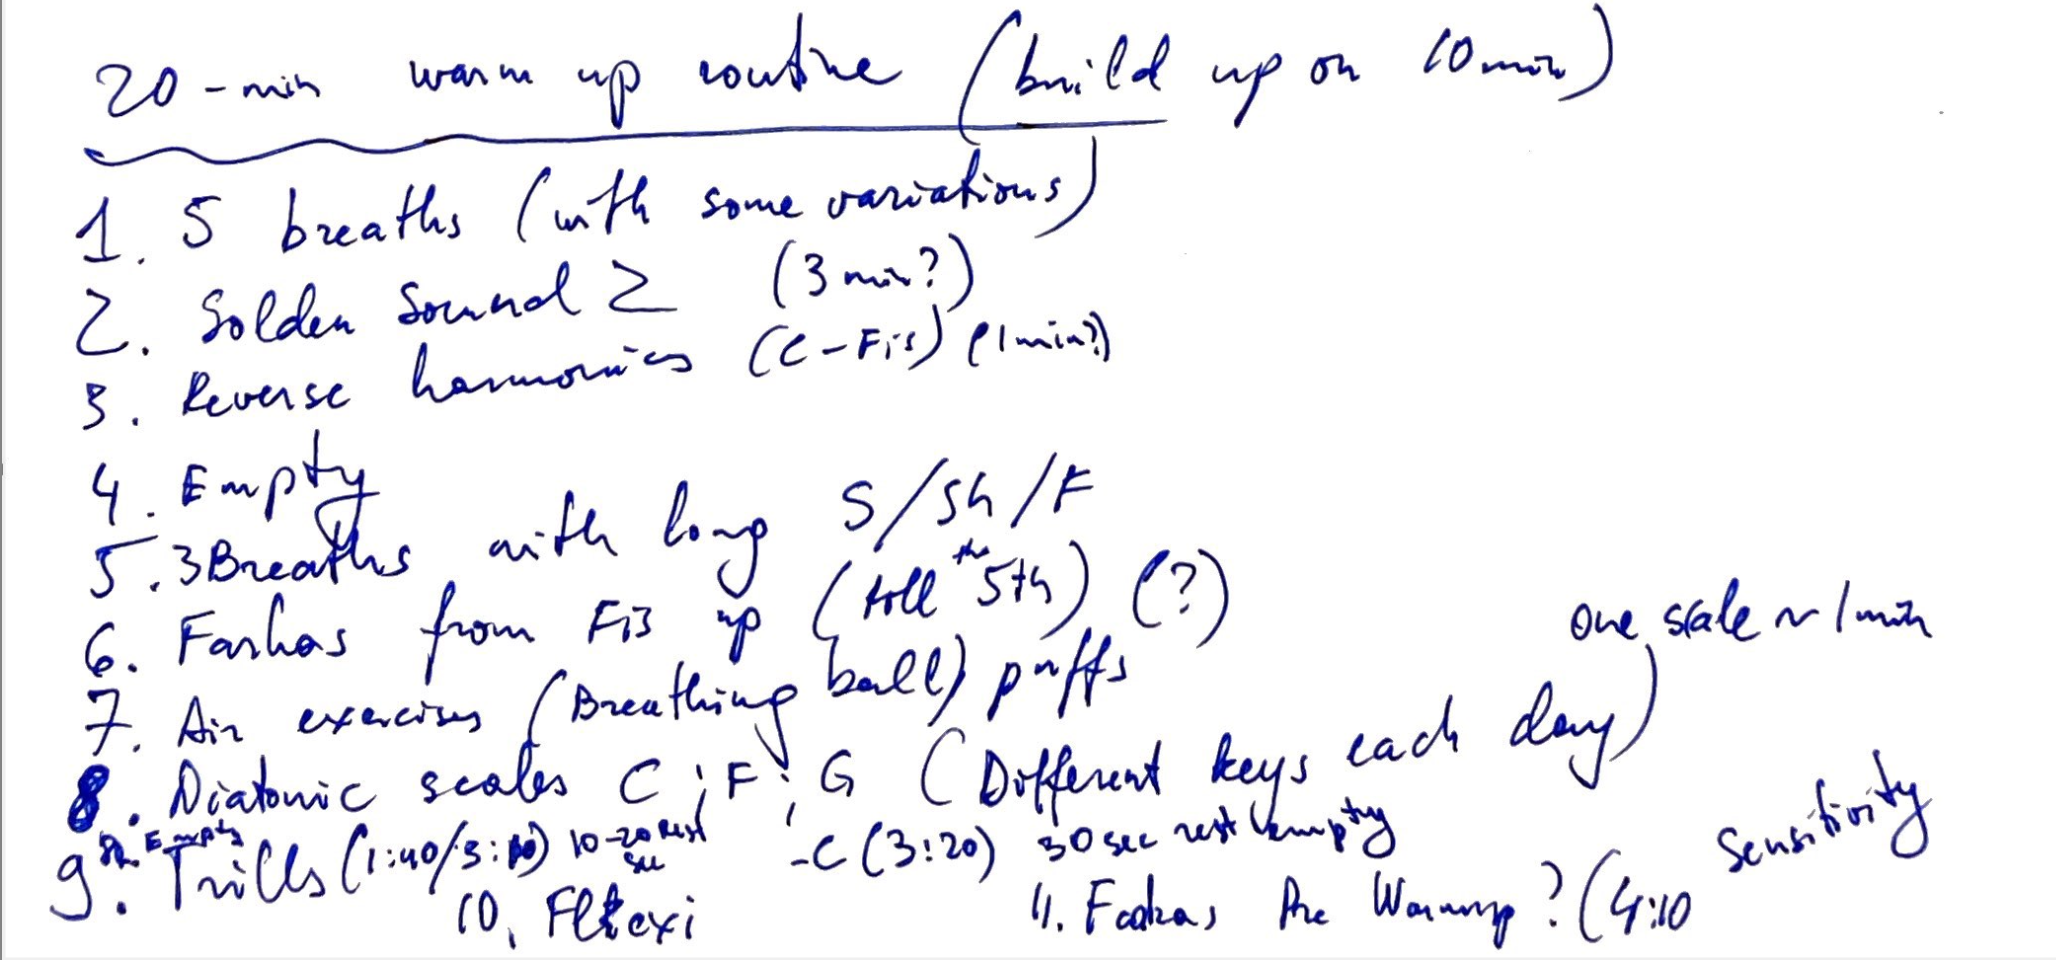 20-min warm up routine (build up on 10 min)
1. 5 breaths (with some variations)
2. Solden Sound 2 (3 min?)
3. Reverse harmonics (C-Fis) (1min?)
4. Empty
5. 3 Breaths with long S/Sh/F
6. from Fis up (till the 5th) (?)
7. Air exercises (Breathing ball) puffs
one scale ~ 1 min
8. Diatonic scales C; F; G (Different keys each day)
Empty
9. Trills (1:40/3:10) 10-20 sec Rest -C (3:20) 30 sec rest/empty
Sensitivity
10. Flexi 11. Warmup? (4:10